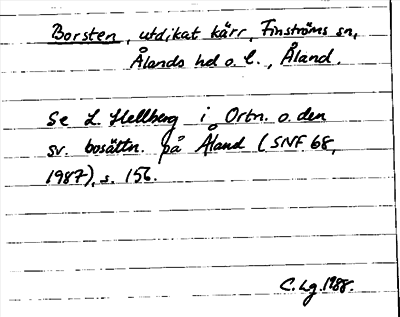 Borsten, utdikat kärr, Finströms sn,
Ålands hd o. l., Åland.
Se L Hellberg i Ortn. o. den
sv. bosättn. på Åland (SNF 68,
1987), s. 156.
C. Lg. 1988.